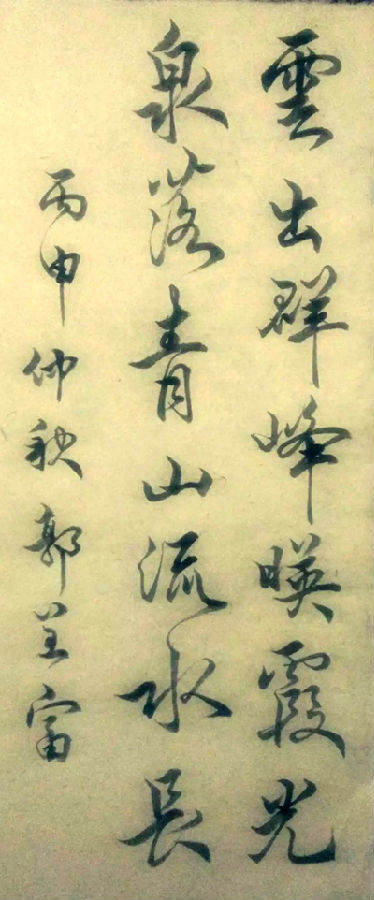 雲出群峰暎霞光
泉落青山流水長
丙申仲秋郭呈富